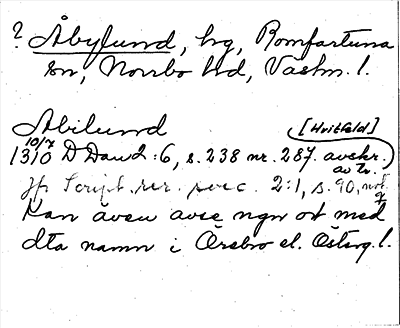 ? Åbylund, hg, Romfartuna
sn, Norrbo hd, Vastm. l.
Abilund [Hvitfeld]
10/7
1310 D Dan 2:6, s. 238 nr. 287. avskr.
av tr.
Jfr Script. rer. svec. 2:1, s. 90, not
q
Kan även avse ngn ort med
dta namn i Örebro el. Österg. l.